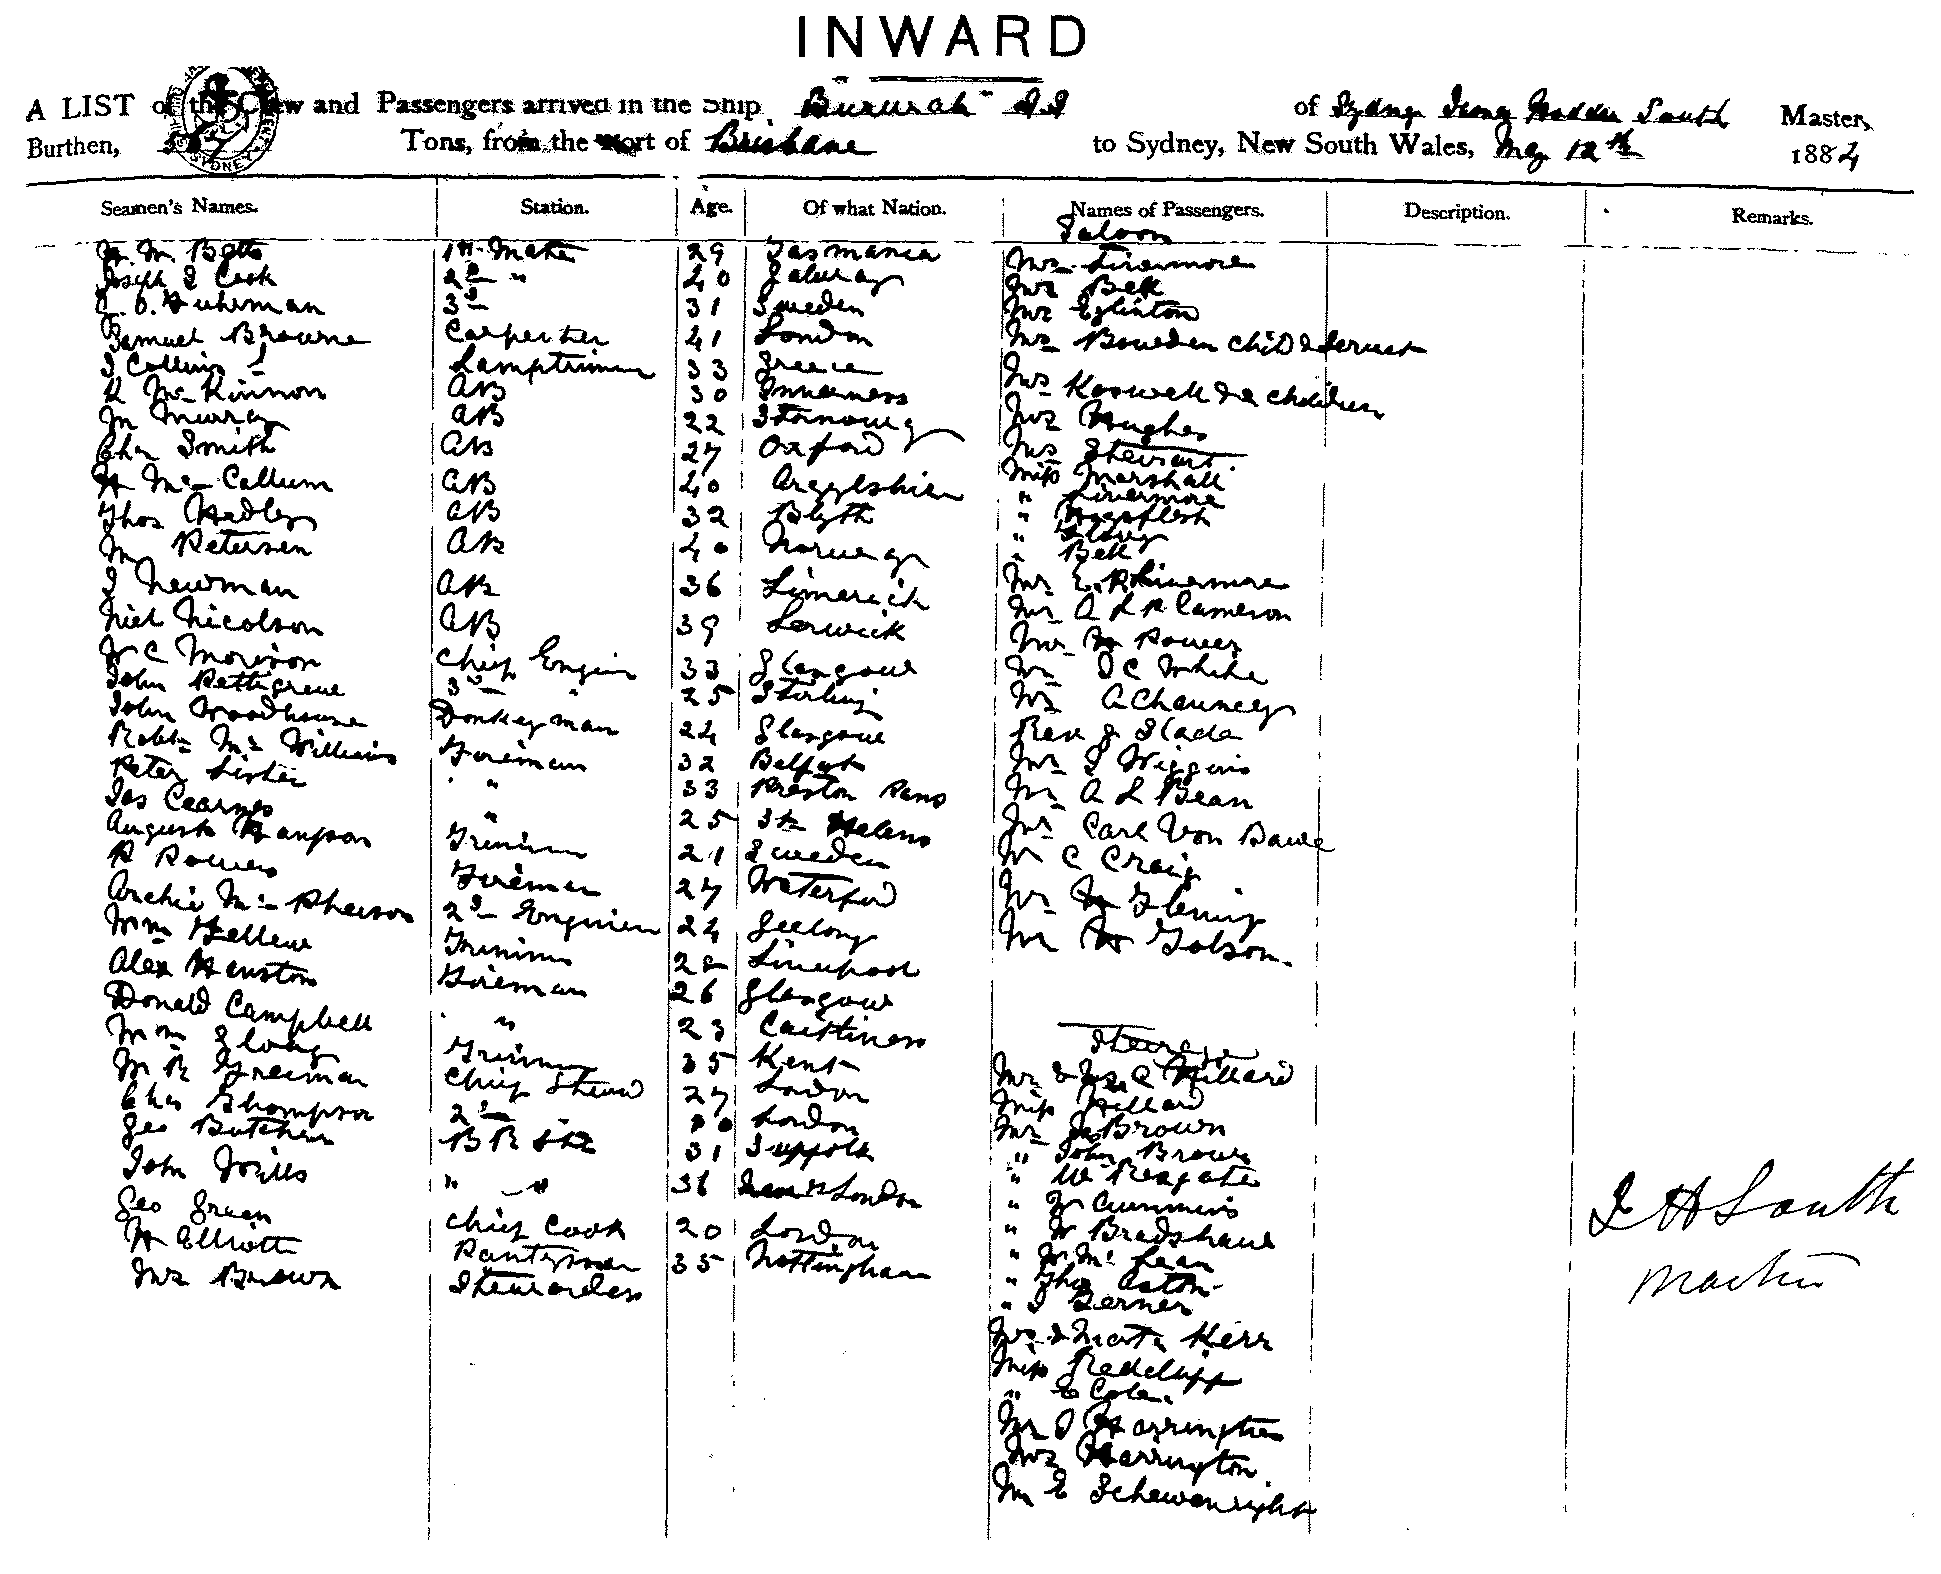 INWARD
A LIST of the Crew and Passengers arrived in the Ship "Bururah" SS of Sydney South Master,
Burthen, Tons, from the Port of Brisbane to Sydney, New South Wales, May 12th 1884
Seamen's Names. Station. Age. Of what Nation. Names of Passengers. Description. Remarks.
Saloon
W. M. Betts 1st Mate 29 Tasmania Mrs Livermore
Joseph J Cook 2nd " 40 Galway Mrs Bell
3rd 31 Sweden Mrs Eglinton
Samuel Browne Carpenter 41 London Mrs Bowden child & servant
J Collins Lamptrimmer 33 Greece
K McKinnon AB 30 Inverness Mrs Koswell & 2 children
M Murray AB 22 Stornoway Mrs Hughes
Chas Smith AB 27 Oxford Mrs Stewart
H McCallum AB 40 Argylshire Miss Marshall
Thos Hedley AB 32 Blyth " Livermore
M Petersen AB 40 Norway " Bell
J Newman AB 36 Limerick Mr E. R Livermore
Niel Nicolson AB 39 Lerwick Mr A L P Cameron
W C Morison Chief Engin 33 Glasgow Mr M Power
John Pettigrew 3rd " 25 Stirling Mr J C White
John Woodhouse Donkeyman 24 Glasgow Mr A Chauncey
Robt McWilliams Fireman 32 Belfast Rev J Slade
Peter Lister " " 33 Preston Pans Mr J Wiggins
Jas Cearnes " 25 St Helens Mr A L Bean
August Hanson Trimmer 21 Sweden Mr Carl Von
R Powers Fireman 27 Waterford Mr C Craig
Archie McPherson 2nd Engineer 24 Geelong Mr Fleming
Wm Bellew Trimmer Liverpool Mr W Gobson.
Alex Houston Fireman 26 Glasgow
Donald Campbell " " 23 Caithness
Steerage
Wm Long Trimmer 35 Kent Mr & Mrs C Hillard
W R Freeman Chief Steward 27 London Miss Hillard
Chas Thompson 2nd London Mr Js Brown
Geo Butcher 31 Suffolk " John Brown
John 36 London " W Reagate
Geo Green Chief Cook 20 London " W Cummins
H Elliott Pantryman 35 Nottingham " W Bradshaw
Mrs Brown Stewardess " W McLean
" Thos Aston
" J Gerner
Mrs & Mastr Kerr
Miss Redcliff
" E Cole
Mr J Harrington
Mrs Harrington
Mr E
J H South
Master